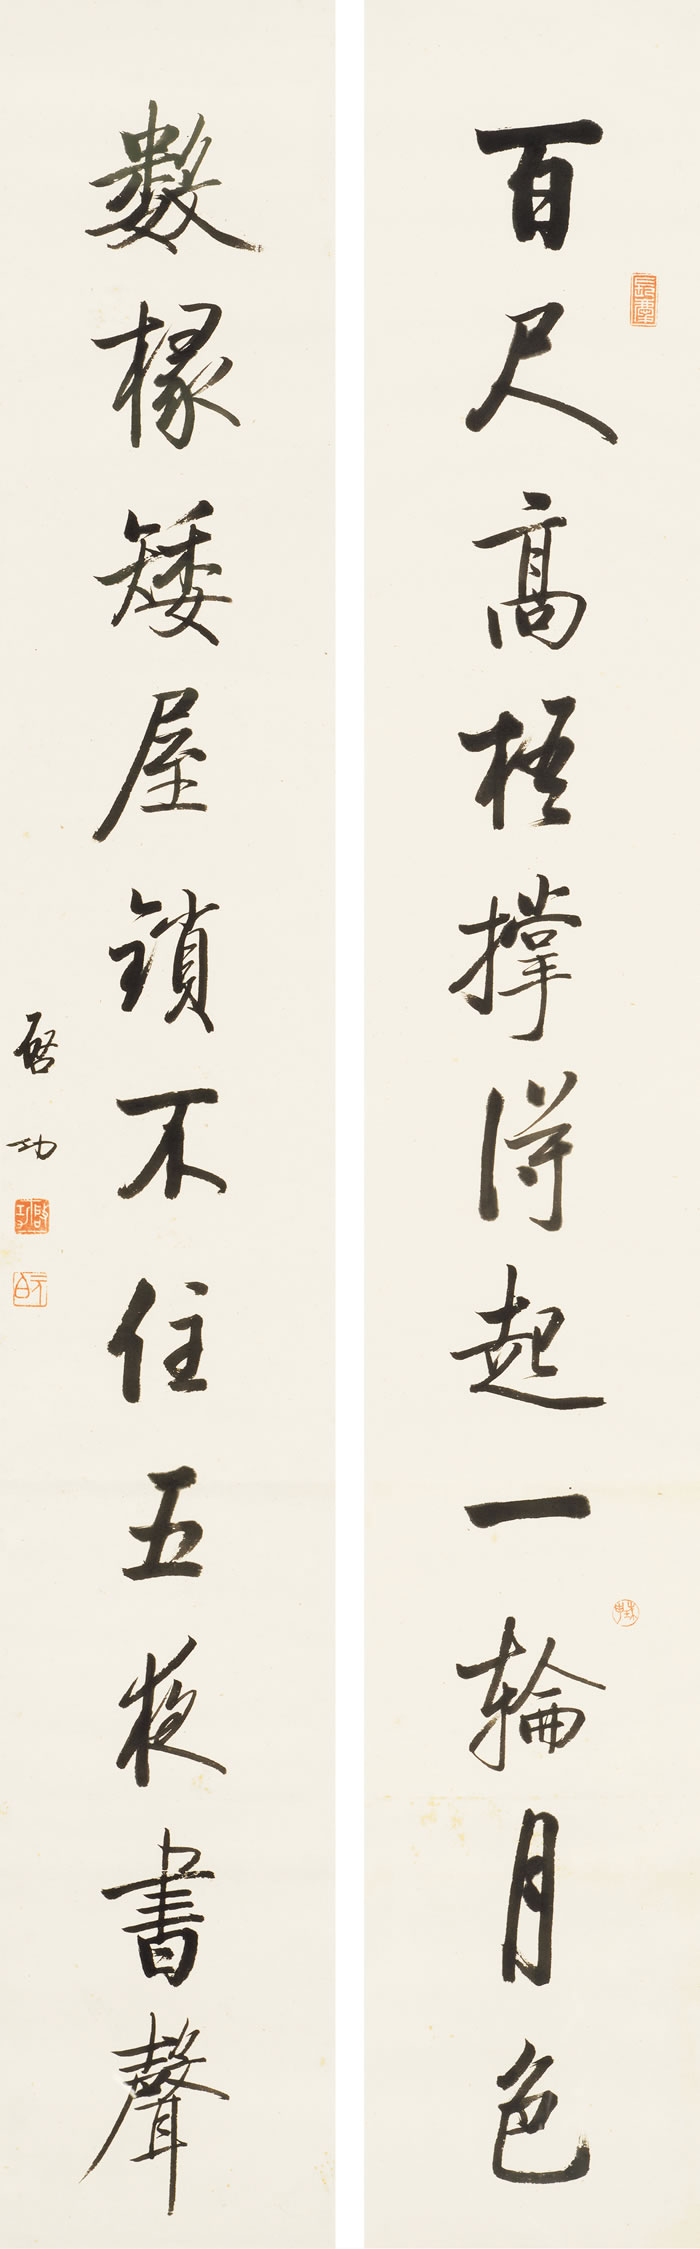 百尺高梧撑得起一輪月色
數椽矮屋鎖不住五夜書聲
啓功